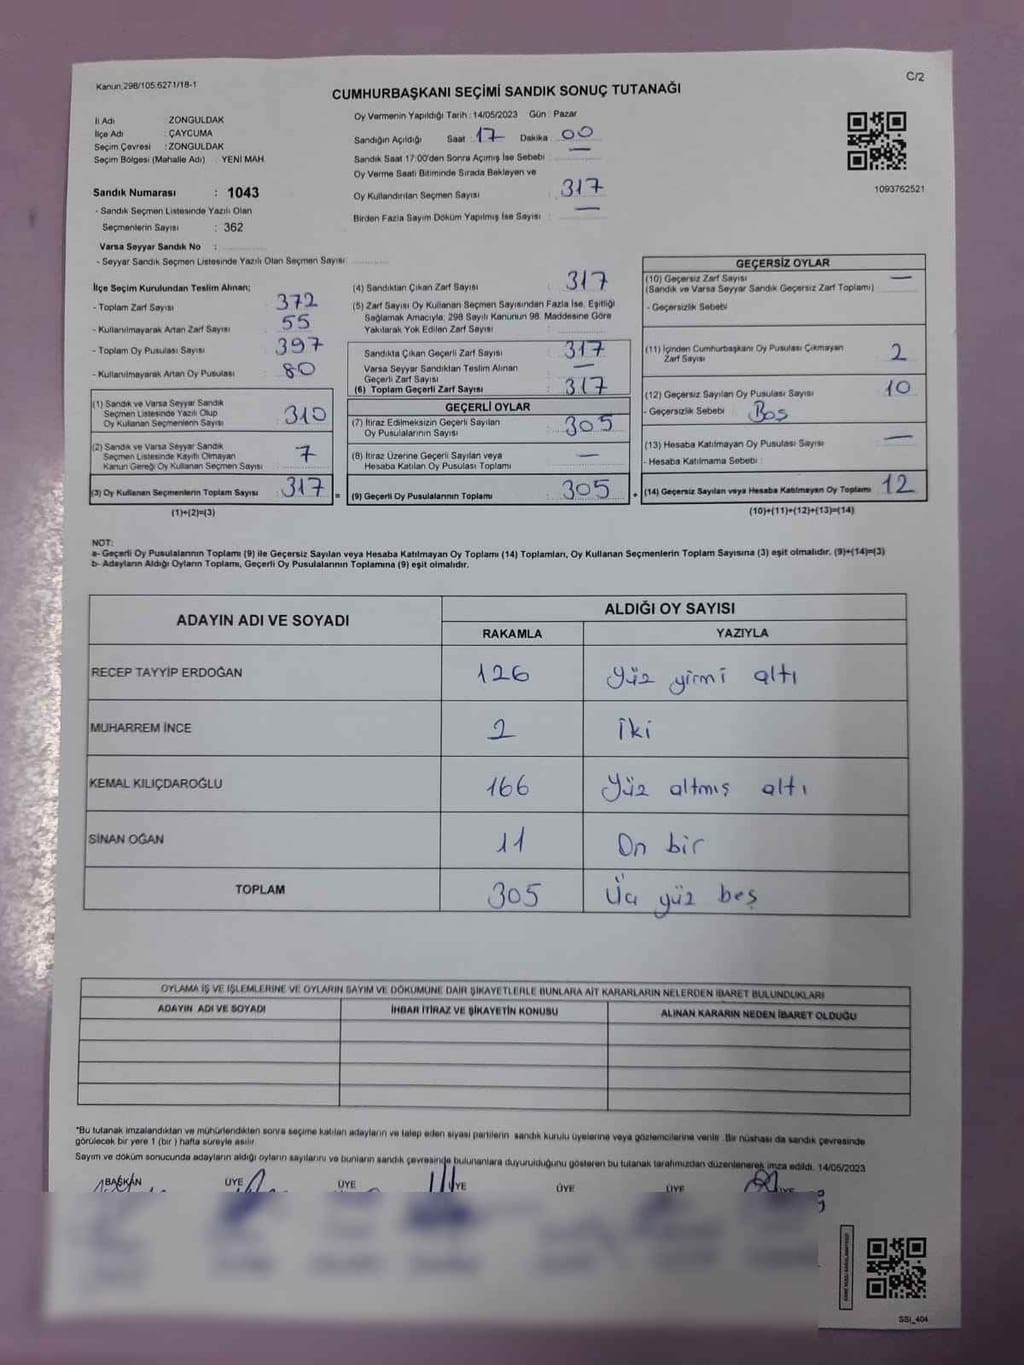 Kanun 298/105 6271/18-1
C/2
CUMHURBAŞKANI SEÇİMİ SANDIK SONUÇ TUTANAĞI
İl Adı : ZONGULDAK
İlçe Adı : ÇAYCUMA
Seçim Çevresi : ZONGULDAK
Seçim Bölgesi (Mahalle Adı) YENİ MAH.
Sandık Numarası : 1043
- Sandık Seçmen Listesinde Yazılı Olan
Seçmenlerin Sayısı : 362
Varsa Seyyar Sandık No :
- Seyyar Sandık Seçmen Listesinde Yazılı Olan Seçmen Sayısı
Oy Vermenin Yapıldığı Tarih : 14/05/2023 Gün : Pazar
Sandığın Açıldığı Saat 17 Dakika 00
Sandık Saat 17:00'den Sonra Açılmış İse Sebebi —
Oy Verme Saati Bitiminde Sırada Bekleyen ve
Oy Kullandırılan Seçmen Sayısı 317
Birden Fazla Sayım Döküm Yapılmış İse Sayısı : —
1093762521
İlçe Seçim Kurulundan Teslim Alınan;
- Toplam Zarf Sayısı 372
- Kullanılmayarak Artan Zarf Sayısı 55
- Toplam Oy Pusulası Sayısı 397
- Kullanılmayarak Artan Oy Pusulası 80
(1) Sandık ve Varsa Seyyar Sandık
Seçmen Listesinde Yazılı Olup
Oy Kullanan Seçmenlerin Sayısı 310
(2) Sandık ve Varsa Seyyar Sandık
Seçmen Listesinde Kayıtlı Olmayan
Kanun Gereği Oy Kullanan Seçmen Sayısı 7
(3) Oy Kullanan Seçmenlerin Toplam Sayısı 317 =
(1)+(2)=(3)
(4) Sandıktan Çıkan Zarf Sayısı 317
(5) Zarf Sayısı Oy Kullanan Seçmen Sayısından Fazla İse, Eşitliği
Sağlamak Amacıyla, 298 Sayılı Kanunun 98. Maddesine Göre
Yakılarak Yok Edilen Zarf Sayısı :
Sandıkta Çıkan Geçerli Zarf Sayısı : 317
Varsa Seyyar Sandıktan Teslim Alınan
Geçerli Zarf Sayısı —
(6) Toplam Geçerli Zarf Sayısı : 317
GEÇERLİ OYLAR
(7) İtiraz Edilmeksizin Geçerli Sayılan
Oy Pusulalarının Sayısı 305
(8) İtiraz Üzerine Geçerli Sayılan veya
Hesaba Katılan Oy Pusulası Toplamı —
(9) Geçerli Oy Pusulalarının Toplamı 305 +
GEÇERSİZ OYLAR
(10) Geçersiz Zarf Sayısı —
(Sandık ve Varsa Seyyar Sandık Geçersiz Zarf Toplamı)
- Geçersizlik Sebebi
(11) İçinden Cumhurbaşkanı Oy Pusulası Çıkmayan
Zarf Sayısı 2
(12) Geçersiz Sayılan Oy Pusulası Sayısı 10
- Geçersizlik Sebebi Boş
(13) Hesaba Katılmayan Oy Pusulası Sayısı —
- Hesaba Katılmama Sebebi :
(14) Geçersiz Sayılan veya Hesaba Katılmayan Oy Toplamı 12
(10)+(11)+(12)+(13)=(14)
NOT:
a- Geçerli Oy Pusulalarının Toplamı (9) ile Geçersiz Sayılan veya Hesaba Katılmayan Oy Toplamı (14) Toplamları, Oy Kullanan Seçmenlerin Toplam Sayısına (3) eşit olmalıdır. (9)+(14)=(3)
b- Adayların Aldığı Oyların Toplamı, Geçerli Oy Pusulalarının Toplamına (9) eşit olmalıdır.
ADAYIN ADI VE SOYADI
ALDIĞI OY SAYISI
RAKAMLA YAZIYLA
RECEP TAYYİP ERDOĞAN 126 Yüz yirmi altı
MUHARREM İNCE 2 İki
KEMAL KILIÇDAROĞLU 166 Yüz altmış altı
SİNAN OĞAN 11 On bir
TOPLAM 305 Üç yüz beş
OYLAMA İŞ VE İŞLEMLERİNE VE OYLARIN SAYIM VE DÖKÜMÜNE DAİR ŞİKAYETLERLE BUNLARA AİT KARARLARIN NELERDEN İBARET BULUNDUKLARI
ADAYIN ADI VE SOYADI İHBAR İTİRAZ VE ŞİKAYETİN KONUSU ALINAN KARARIN NEDEN İBARET OLDUĞU
*Bu tutanak imzalandıktan ve mühürlendikten sonra seçime katılan adayların ve talep eden siyasi partilerin sandık kurulu üyelerine veya gözlemcilerine verilir. Bir nüshası da sandık çevresinde
görülecek bir yere 1 (bir ) hafta süreyle asılır.
Sayım ve döküm sonucunda adayların aldığı oyların sayılarını ve bunların sandık çevresinde bulunanlara duyurulduğunu gösteren bu tutanak tarafımızdan düzenlenerek imza edildi. 14/05/2023
BAŞKAN ÜYE ÜYE ÜYE ÜYE ÜYE ÜYE
SSI_404